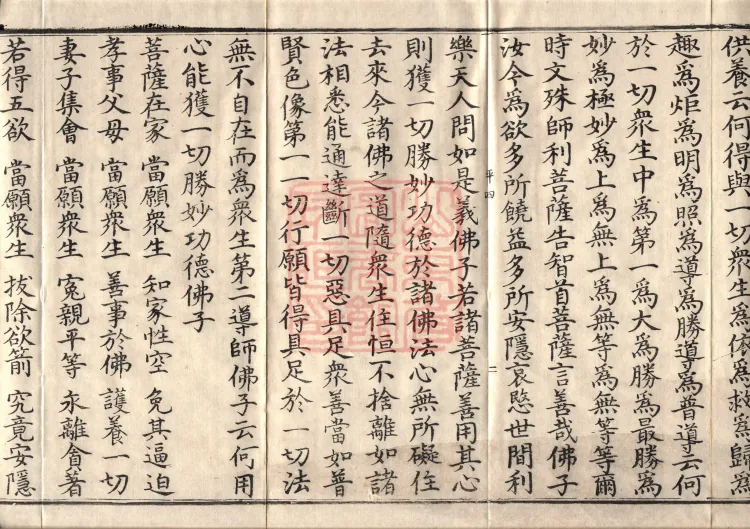 供養云何得與一切衆生為依為救為歸為
趣為炬為明為照為導為勝導為普導云何
於一切衆生中為第一為大為勝為最勝為
妙為極妙為上為無上為無等為無等等爾
時文殊師利菩薩告智首菩薩言善哉佛子
汝今為欲多所饒益多所安隱哀愍世間利
平四 二
樂天人問如是義佛子若諸菩薩善用其心
則獲一切勝妙功德於諸佛法心無所礙住
去來今諸佛之道隨衆生住恒不捨離如諸
法相悉能通達斷一切惡具足衆善當如普
賢色像第一一切行願皆得具足於一切法
無不自在而為衆生第二導師佛子云何用
心能獲一切勝妙功德佛子
菩薩在家 當願衆生 知家性空 免其逼迫
孝事父母 當願衆生 善事於佛 護養一切
妻子集會 當願衆生 冤親平等 永離貪著
若得五欲 當願衆生 拔除欲箭 究竟安隱